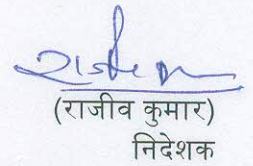 (राजीव कुमार)
निदेशक